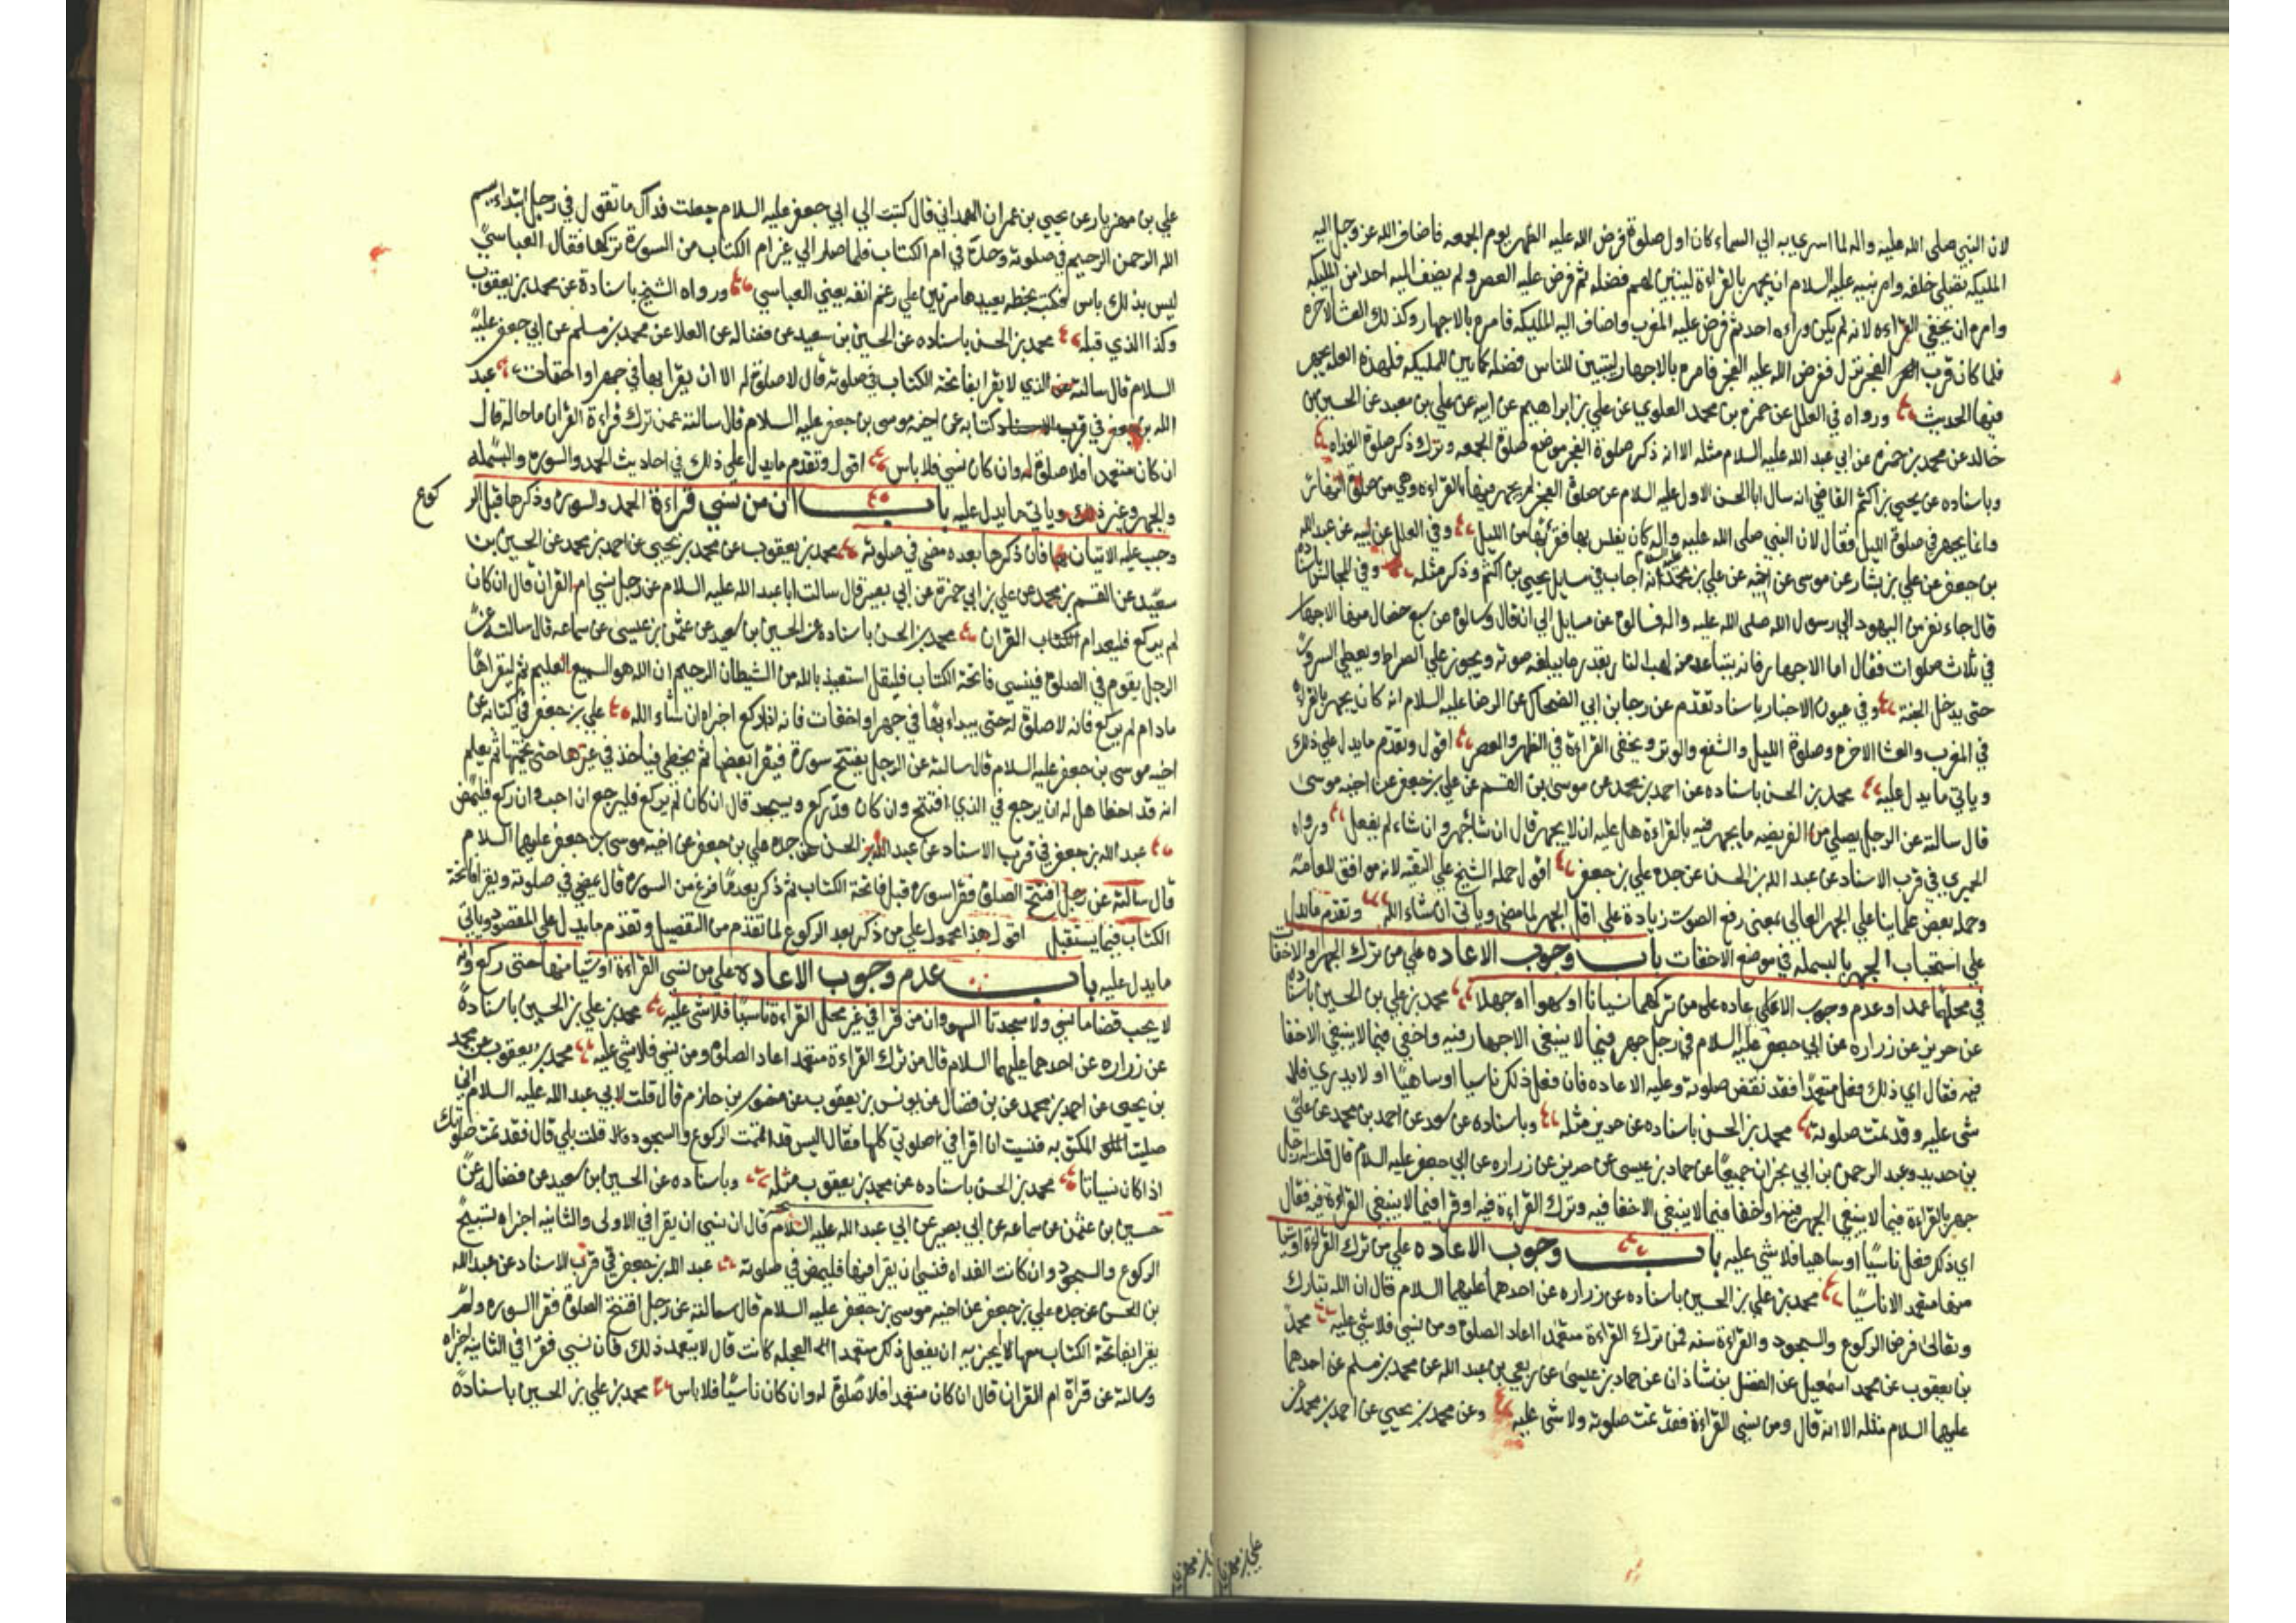 لان النبي صلى الله عليه واله لما اسري به الي السماء كان اول صلوة فرض الله عليه الظهر يوم الجمعه فاضاف الله عز وجل اليه
المليكه تصلي خلفه وامر نبيه عليه السلام ان يجهر بالقراءة ليتبين لهم فضله ثم فرض عليه العصر ولم يضف اليه احدا من المليكه
وامره ان يخفي القراءه لانه لم يكن وراءه احد ثم فرض عليه المغرب واضاف اليه المليكه فامره بالاجهار وكذلك العشا الاخره
فلما كان قرب الفجر نزل ففرض الله عليه الفجر فامره بالاجهار ليتبين للناس فضله كما بين للمليكه فلهذه العله يجهر
فيها الحديث ورواه في العلل عن حمزه بن محمد العلوي عن علي بن ابراهيم عن ابيه عن علي بن معبد عن الحسين بن
خالد عن محمد بن حمزه عن ابي عبد الله عليه السلام مثله الا انه ذكر صلوة الفجر موضع صلوة الجمعه وترك ذكر صلوة الغداه
وباسناده عن يحيي بن اكثم القاضي انه سال ابا الحسن الاول عليه السلام عن صلوة الفجر لم يجهر فيها بالقراءه وهي من صلوة النهار
وانما يجهر في صلوة الليل فقال لان النبي صلى الله عليه واله كان يغلس بها فقربها من الليل وفي العلل عن ابيه عن عبد الله
بن جعفر عن علي بن بشار عن موسى عن اخيه عن علي بن محمد انه اجاب في مسايل يحيي بن اكثم وذكر مثله وفي المجالس
قال جاء نفر من اليهود الي رسول الله صلى الله عليه واله فسالوه عن مسايل الي ان قال وسالوه عن سبع خصال منها الاجهار
في ثلاث صلوات فقال اما الاجهار فانه يتباعد منه لهب النار بقدر ما يبلغه صوته ويجوز علي الصراط ويعطي السرور
حتى يدخل الجنة وفي عيون الاخبار باسناد تقدم عن رجا بن ابي الضحاك عن الرضا عليه السلام انه كان يجهر بالقراءه
في المغرب والعشا الاخره وصلوة الليل والشفع والوتر ويخفي القراءة في الظهر والعصر اقول وتقدم ما يدل علي ذلك
وياتي ما يدل عليه محمد بن الحسن باسناده عن احمد بن محمد عن موسى بن القسم عن علي بن جعفر عن اخيه موسى
قال سالته عن الرجل يصلي من الفريضه ما يجهر فيه بالقراءة هل عليه ان لا يجهر قال ان شا جهر وان شاء لم يفعل ورواه
الحميري في قرب الاسناد عن عبد الله بن الحسن عن جده علي بن جعفر اقول حمله الشيخ علي التقيه لانه موافق للعامة
وحمله بعض علماينا علي الجهر العالي بمعني رفع الصوت زيادة علي اقل الجهر لما مضي وياتي ان شاء الله وتقدم ما يدل
علي استحباب الجهر بالبسمله في موضع الاخفات باب وجوب الاعاده علي من ترك الجهر او الاخفات
في محلهما عمدا وعدم وجوب الاعاده علي من تركهما نسيانا او سهوا او جهلا محمد بن علي بن الحسين باسناده
عن حريز عن زراره عن ابي جعفر عليه السلام في رجل جهر فيما لا ينبغي الاجهار فيه واخفي فيما لا ينبغي الاخفا
فيه فقال اي ذلك فعل متعمدا فقد نقض صلوته وعليه الاعاده فان فعل ذلك ناسيا او ساهيا او لا يدري فلا
شي عليه وقد تمت صلوته محمد بن الحسن باسناده عن حريز مثله وباسناده عن سعد عن احمد بن محمد عن علي
بن حديد وعبد الرحمن بن ابي نجران جميعا عن حماد بن عيسى عن حريز عن زراره عن ابي جعفر عليه السلام قال قلت له رجل
جهر بالقراءة فيما لا ينبغي الجهر فيه او اخفا فيما لا ينبغي الاخفا فيه وترك القراءة فيه او قرا فيما لا ينبغي القراءة فيه فقال
اي ذلك فعل ناسيا او ساهيا فلا شي عليه باب وجوب الاعاده علي من ترك القراءة او شيا
منها متعمد الا ناسيا محمد بن علي بن الحسين باسناده عن زراره عن احدهما عليهما السلام قال ان الله تبارك
وتعالى فرض الركوع والسجود والقراءة سنه فمن ترك القراءة متعمدا اعاد الصلوة ومن نسي فلا شي عليه محمد
بن يعقوب عن محمد اسمعيل عن الفضل بن شاذان عن حماد بن عيسى عن ربعي بن عبد الله عن محمد بن مسلم عن احدهما
عليهما السلام مثله الا انه قال ومن نسي القراءة فقد تمت صلوته ولا شى عليه وعن محمد بن يحيي عن احمد بن محمد عن
علي بن مهزيار
علي بن مهزيار عن يحيي بن عمران الهمداني قال كتبت الي ابي جعفر عليه السلام جعلت فداك ما تقول في رجل ابتداء ببسم
الله الرحمن الرحيم في صلوته وحده في ام الكتاب فلما صار الي غير ام الكتاب من السورة تركها فقال العباسي
ليس بذلك باس فكتب بخطه يعيدها مرتين علي رغم انفه يعني العباسي ورواه الشيخ باسناده عن محمد بن يعقوب
وكذا الذي قبله محمد بن الحسن باسناده عن الحسين بن سعيد عن فضاله عن العلا عن محمد بن مسلم عن ابي جعفر عليه
السلام قال سالته عن الذي لا يقرا بفاتحة الكتاب في صلوته قال لا صلوة له الا ان يقرا بها في جهر او اخفات عبد
الله بن جعفر في قرب الاسناد كتابه عن اخيه موسى بن جعفر عليه السلام قال سالته عمن ترك قراءة القران ما حاله قال
ان كان متعمدا فلا صلوة له وان كان نسي فلا باس اقول وتقدم ما يدل علي ذلك في احاديث الحمد والسوره والبسمله
والجهر وغير ذلك وياتي ما يدل عليه باب ان من نسي قراءة الحمد والسوره وذكرها قبل الر
كوع
وجب عليه الاتيان بها فان ذكرها بعده مضى في صلوته محمد بن يعقوب عن محمد بن يحيي عن احمد بن محمد عن الحسين بن
سعيد عن القسم بن محمد عن علي بن ابي حمزة عن ابي بصير قال سالت ابا عبد الله عليه السلام عن رجل نسي ام القران قال ان كان
لم يركع فليعد ام الكتاب القران محمد بن الحسن باسناده عن الحسين بن سعيد عن عثمن بن عيسى عن سماعه قال سالته عن
الرجل يقوم في الصلوة فينسي فاتحة الكتاب فليقل استعيذ بالله من الشيطان الرجيم ان الله هو السميع العليم ثم ليقراها
مادام لم يركع فانه لا صلوة له حتى يبداء بها في جهر او اخفات فانه اذا ركع اجزاه ان شاء الله علي بن جعفر في كتابه عن
اخيه موسى بن جعفر عليه السلام قال سالته عن الرجل يفتتح سورة فيقرا بعضها ثم يخطي فياخذ في غيرها حتى يختمها ثم يعلم
انه قد اخطا هل له ان يرجع في الذي افتتح وان كان قد ركع ويسجد قال ان كان لم يركع فليرجع ان احب وان ركع فليمض
عبد الله بن جعفر في قرب الاسناد عن عبد الله بن الحسن عن جده علي بن جعفر عن اخيه موسى بن جعفر عليهما السلام
قال سالته عن رجل افتتح الصلوة فقرا سوره قبل فاتحة الكتاب ثم ذكر بعد ما فرغ من السوره قال يمضي في صلوته ويقرا فاتحة
الكتاب فيما يستقبل اقول هذا محمول علي من ذكر بعد الركوع لما تقدم من التفصيل وتقدم ما يدل علي المقصود وياتي
ما يدل عليه باب عدم وجوب الاعادة علي من نسي القراءة او شيا منها حتى ركع وانه
لا يجب قضا ما نسي ولا سجدتا السهو وان من قرا في غير محل القراءة ناسيا فلا شى عليه محمد بن علي بن الحسين باسناده
عن زراره عن احدهما عليهما السلام قال من ترك القراءة متعمدا اعاد الصلوة ومن نسي فلا شي عليه محمد بن يعقوب عن محمد
بن يحيى عن احمد بن محمد عن بن فضال عن يونس بن يعقوب عن منصور بن حازم قال قلت لابي عبد الله عليه السلام اني
صليت المكتوبه فنسيت ان اقرا في صلوتي كلها فقال اليس قد اتممت الركوع والسجود قلت بلي قال فقد تمت صلوتك
اذا كان نسيانا محمد بن الحسن باسناده عن محمد بن يعقوب مثله وباسناده عن الحسين بن سعيد عن فضال عن
حسين بن عثمن عن سماعه عن ابي بصير عن ابي عبد الله عليه السلام قال ان نسي ان يقرا في الاولى والثانيه اجزاه تسبيح
الركوع والسجود وان كانت الغداه فنسي ان يقرا فيها فليمض في صلوته عبد الله بن جعفر في قرب الاسناد عن عبد الله
بن الحسن عن جده علي بن جعفر عن اخيه موسى بن جعفر عليه السلام قال سالته عن رجل افتتح الصلوة فقرا السوره ولم
يقرا بفاتحة الكتاب معها ايجزيه ان يفعل ذلك متعمدا العجله كانت قال لا يتعمد ذلك فان نسي فقرا في الثانيه اجزاه
وسالته عن قراة ام القران قال ان كان متعمدا فلا صلوة له وان كان ناسيا فلا باس محمد بن علي بن الحسين باسناده